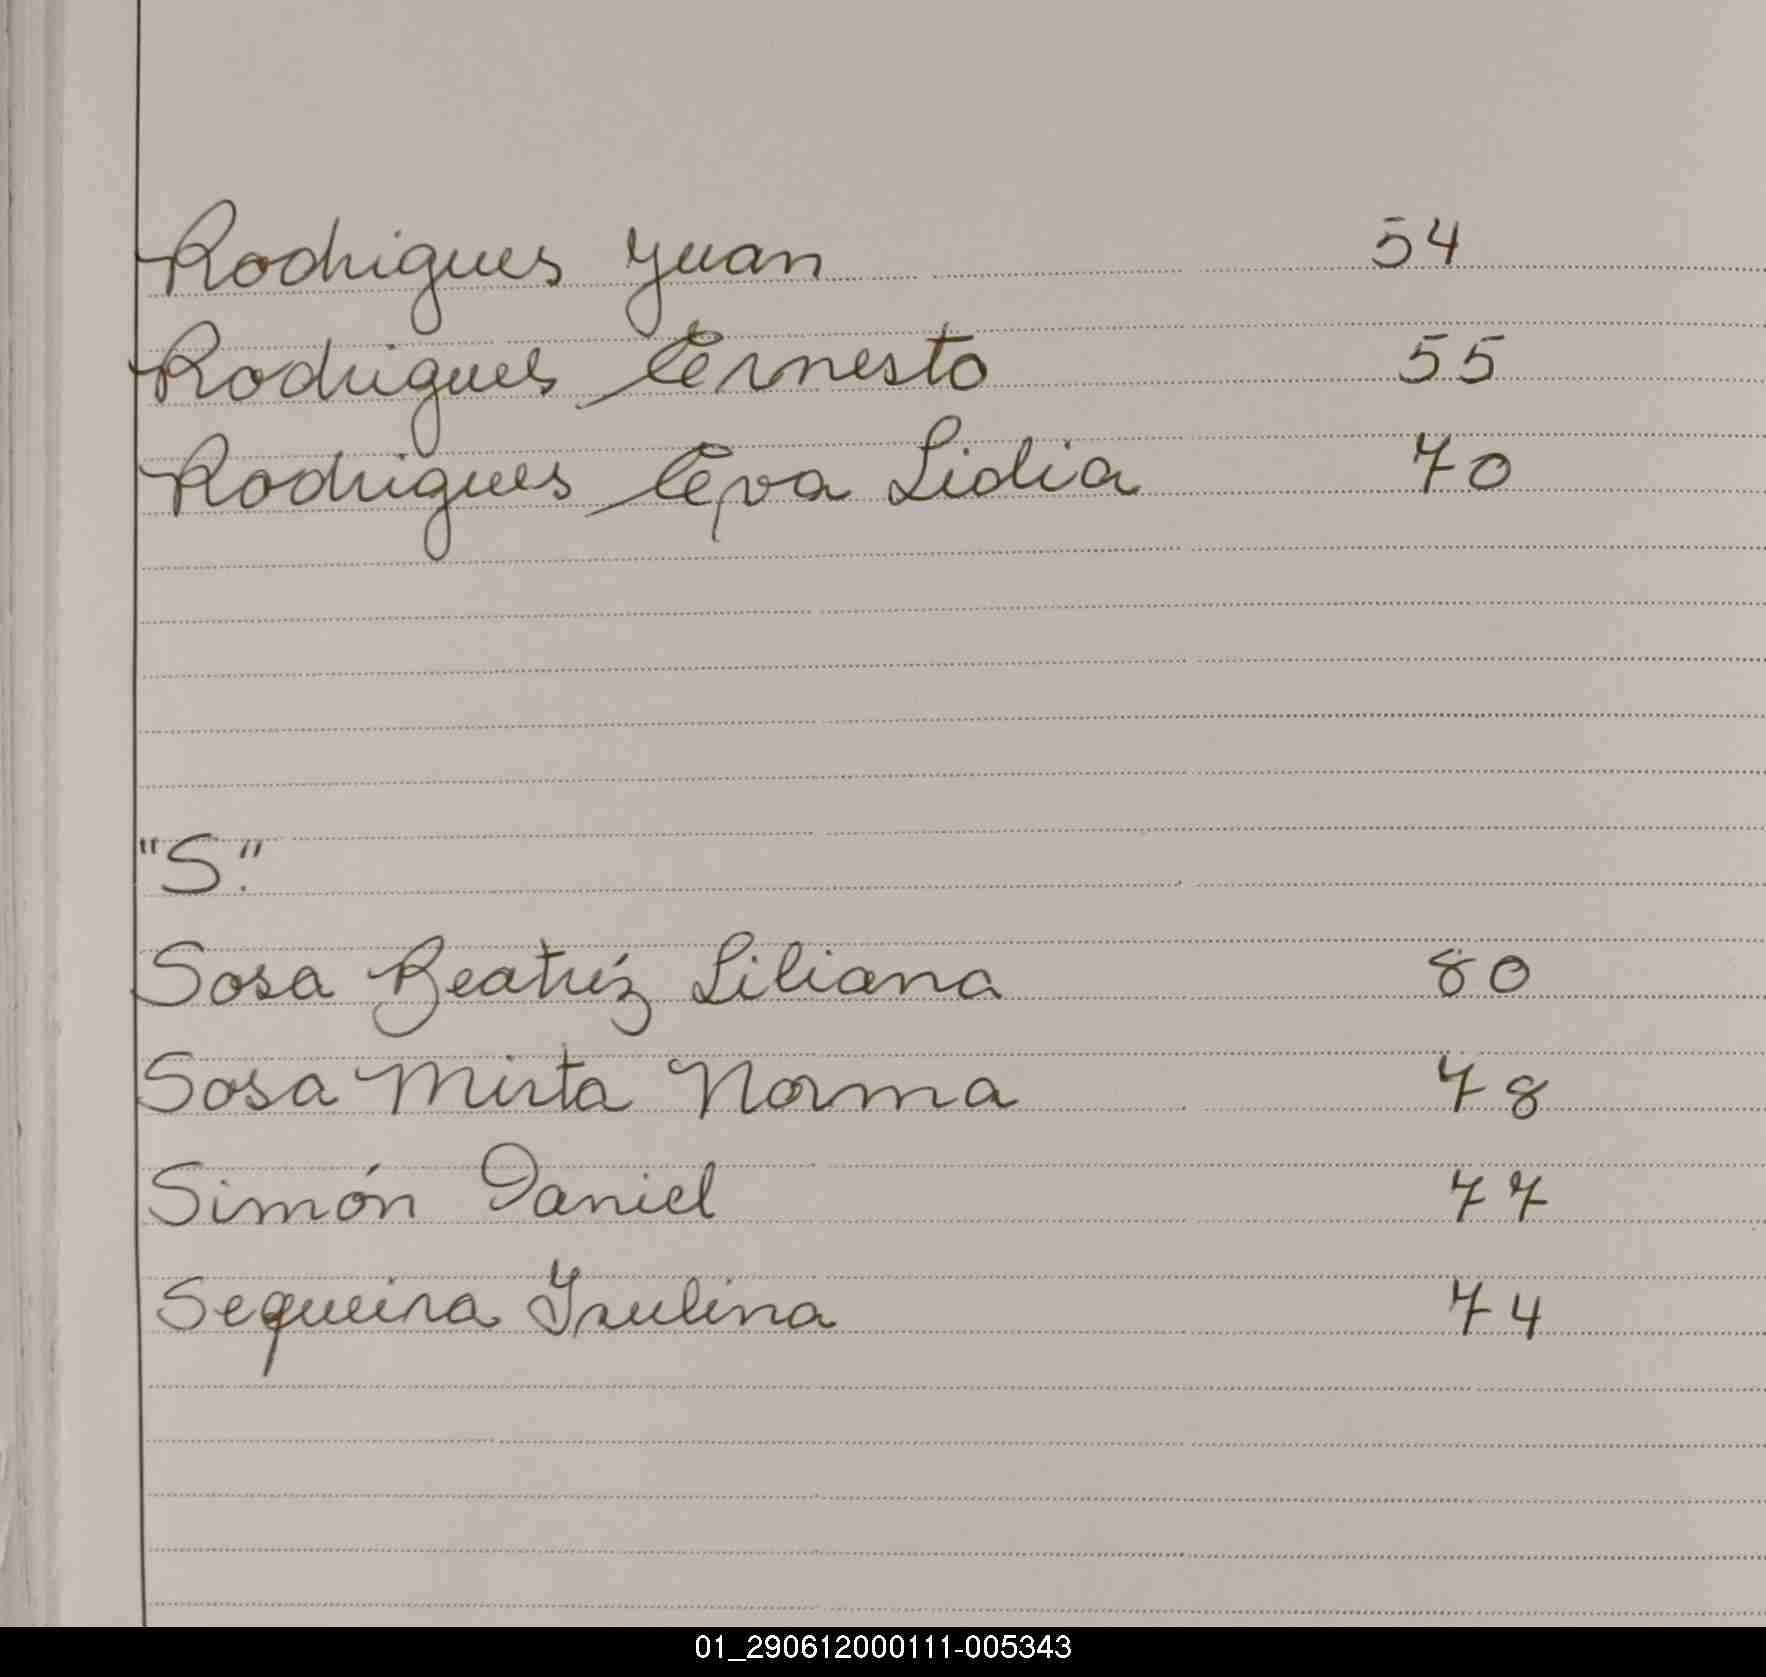 Rodrigues Juan 54
Rodrigues Ernesto 55
Rodrigues Eva Lidia 70
"S."
Sosa Beatríz Liliana 80
Sosa Mirta Norma 78
Simón Daniel 77
Sequeira 74
01_290612000111-005343